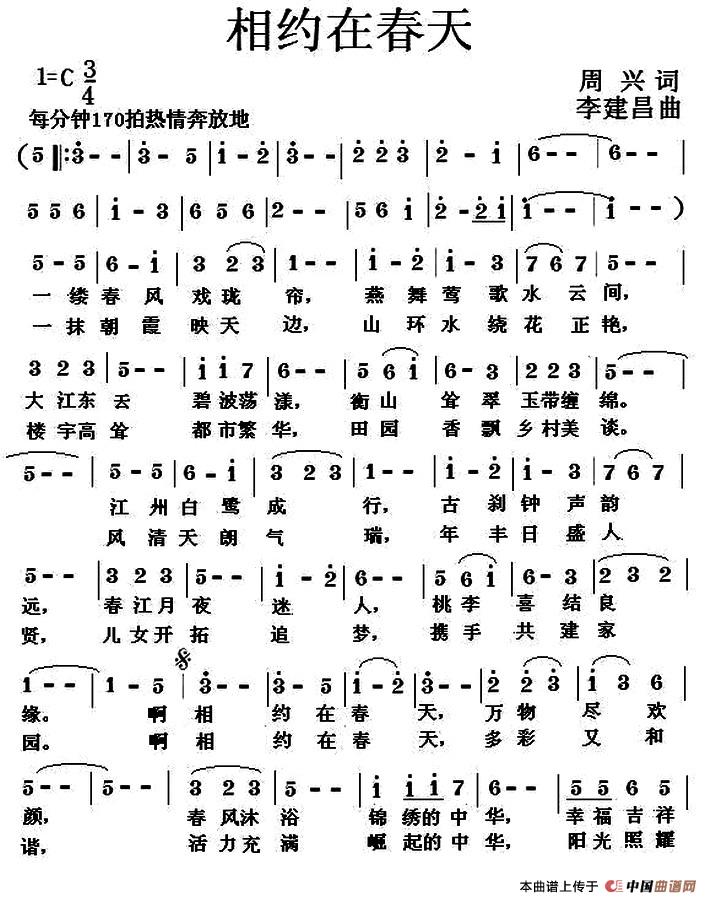 相约在春天
1=C 3/4
周 兴 词
李建昌 曲
每分钟170拍热情奔放地
(5 ‖: 3 - - | 3 - 5 | 1 - 2 | 3 - - | 2 2 3 | 2 - 1 | 6 - - | 6 - - |
5 5 6 | 1 - 3 | 6 5 6 | 2 - - | 5 6 1 | 2 - 2 1 | 1 - - | 1 - - )
5 - 5 | 6 - 1 | 3 2 3 | 1 - - | 1 - 2 | 3 - 1 | 7 6 7 | 5 - - |
一 缕 春 风 戏 珑 帘, 燕 舞 莺 歌 水 云 间,
一 抹 朝 霞 映 天 边, 山 环 水 绕 花 正 艳,
3 2 3 | 5 - - | 1 1 7 | 6 - - | 5 6 1 | 6 - 3 | 2 2 3 | 5 - - |
大 江 东 去 碧 波 荡 漾, 衡 山 耸 翠 玉 带 缠 绵。
楼 宇 高 耸 都 市 繁 华, 田 园 香 飘 乡 村 美 谈。
5 - - | 5 - 5 | 6 - 1 | 3 2 3 | 1 - - | 1 - 2 | 1 - 3 | 7 6 7 |
江 州 白 鹭 成 行, 古 刹 钟 声 韵
风 清 天 朗 气 瑞, 年 丰 日 盛 人
5 - - | 3 2 3 | 5 - - | 1 - 2 | 6 - - | 5 6 1 | 6 - 3 | 2 3 3 |
远, 春 江 月 夜 迷 人, 桃 李 喜 结 良
贤, 儿 女 开 拓 追 梦, 携 手 共 建 家
1 - - | 1 - 5 | 3 - - | 3 - 5 | 1 - 2 | 3 - - | 2 2 3 | 1 3 6 |
缘。 啊 相 约 在 春 天, 万 物 尽 欢
园。 啊 相 约 在 春 天, 多 彩 又 和
5 - - | 5 - - | 3 2 3 | 5 - - | 1 1 1 7 | 6 - - | 5 5 5 6 |
颜, 春 风 沐 浴 锦 绣 的 中 华, 幸 福 吉 祥
谐, 活 力 充 满 崛 起 的 中 华, 阳 光 照 耀
本曲谱上传于 中国曲谱网